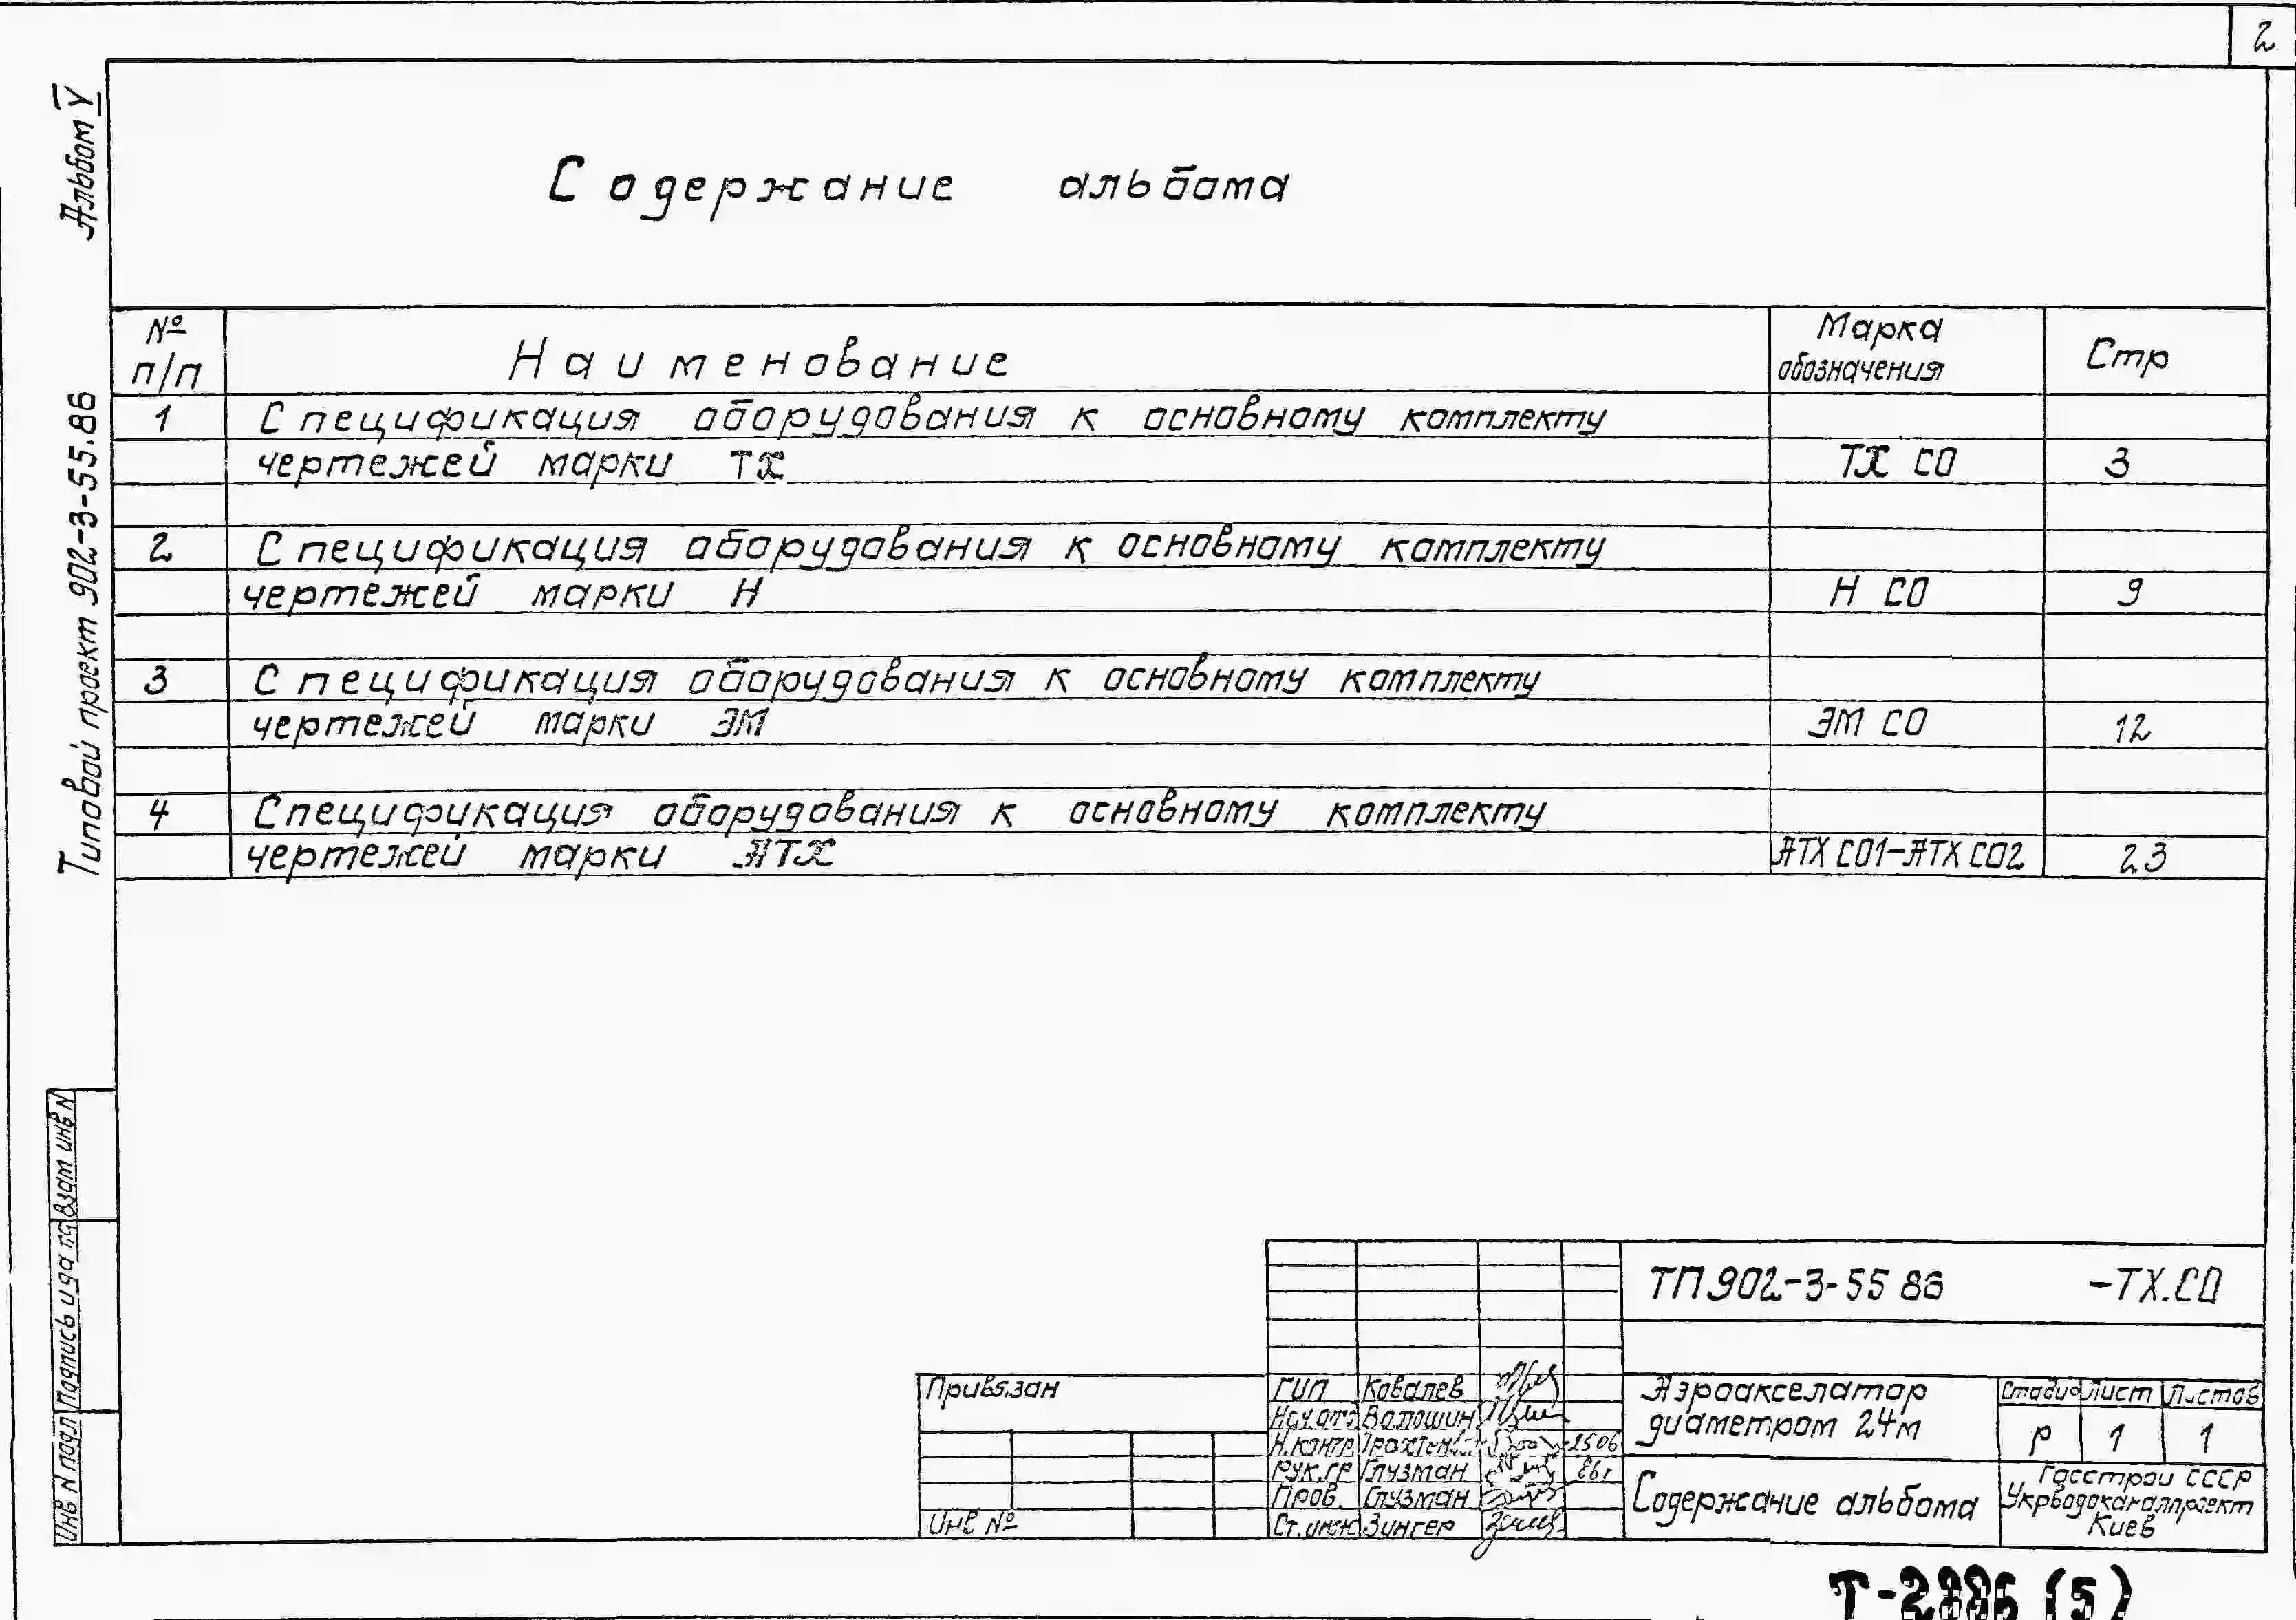 2
Альбом V
Типовой проект 902-3-55.86
Содержание альбома
№ п/п
Наименование
Марка обозначения
Стр
1 Спецификация оборудования к основному комплекту
чертежей марки ТХ ТХ СО 3
2 Спецификация оборудования к основному комплекту
чертежей марки Н Н СО 9
3 Спецификация оборудования к основному комплекту
чертежей марки ЭМ ЭМ СО 12
4 Спецификация оборудования к основному комплекту
чертежей марки АТХ АТХ СО1-АТХ СО2 23
Инв N подл Подпись и да Взам инв N
Привязан
Инв №
ГИП Ковалев
Нач.отд Волошин
Н.контр. 2506
Рук.гр Глузман 86г
Пров. Глузман
Ст.инж Зингер
ТП 902-3-55 86 -ТХ.СО
Аэроакселатор
диаметром 24м
Стадия Лист Листов
Р 1 1
Содержание альбома
Госстрой СССР
Укрводоканалпроект
Киев
Т-2886 (5)